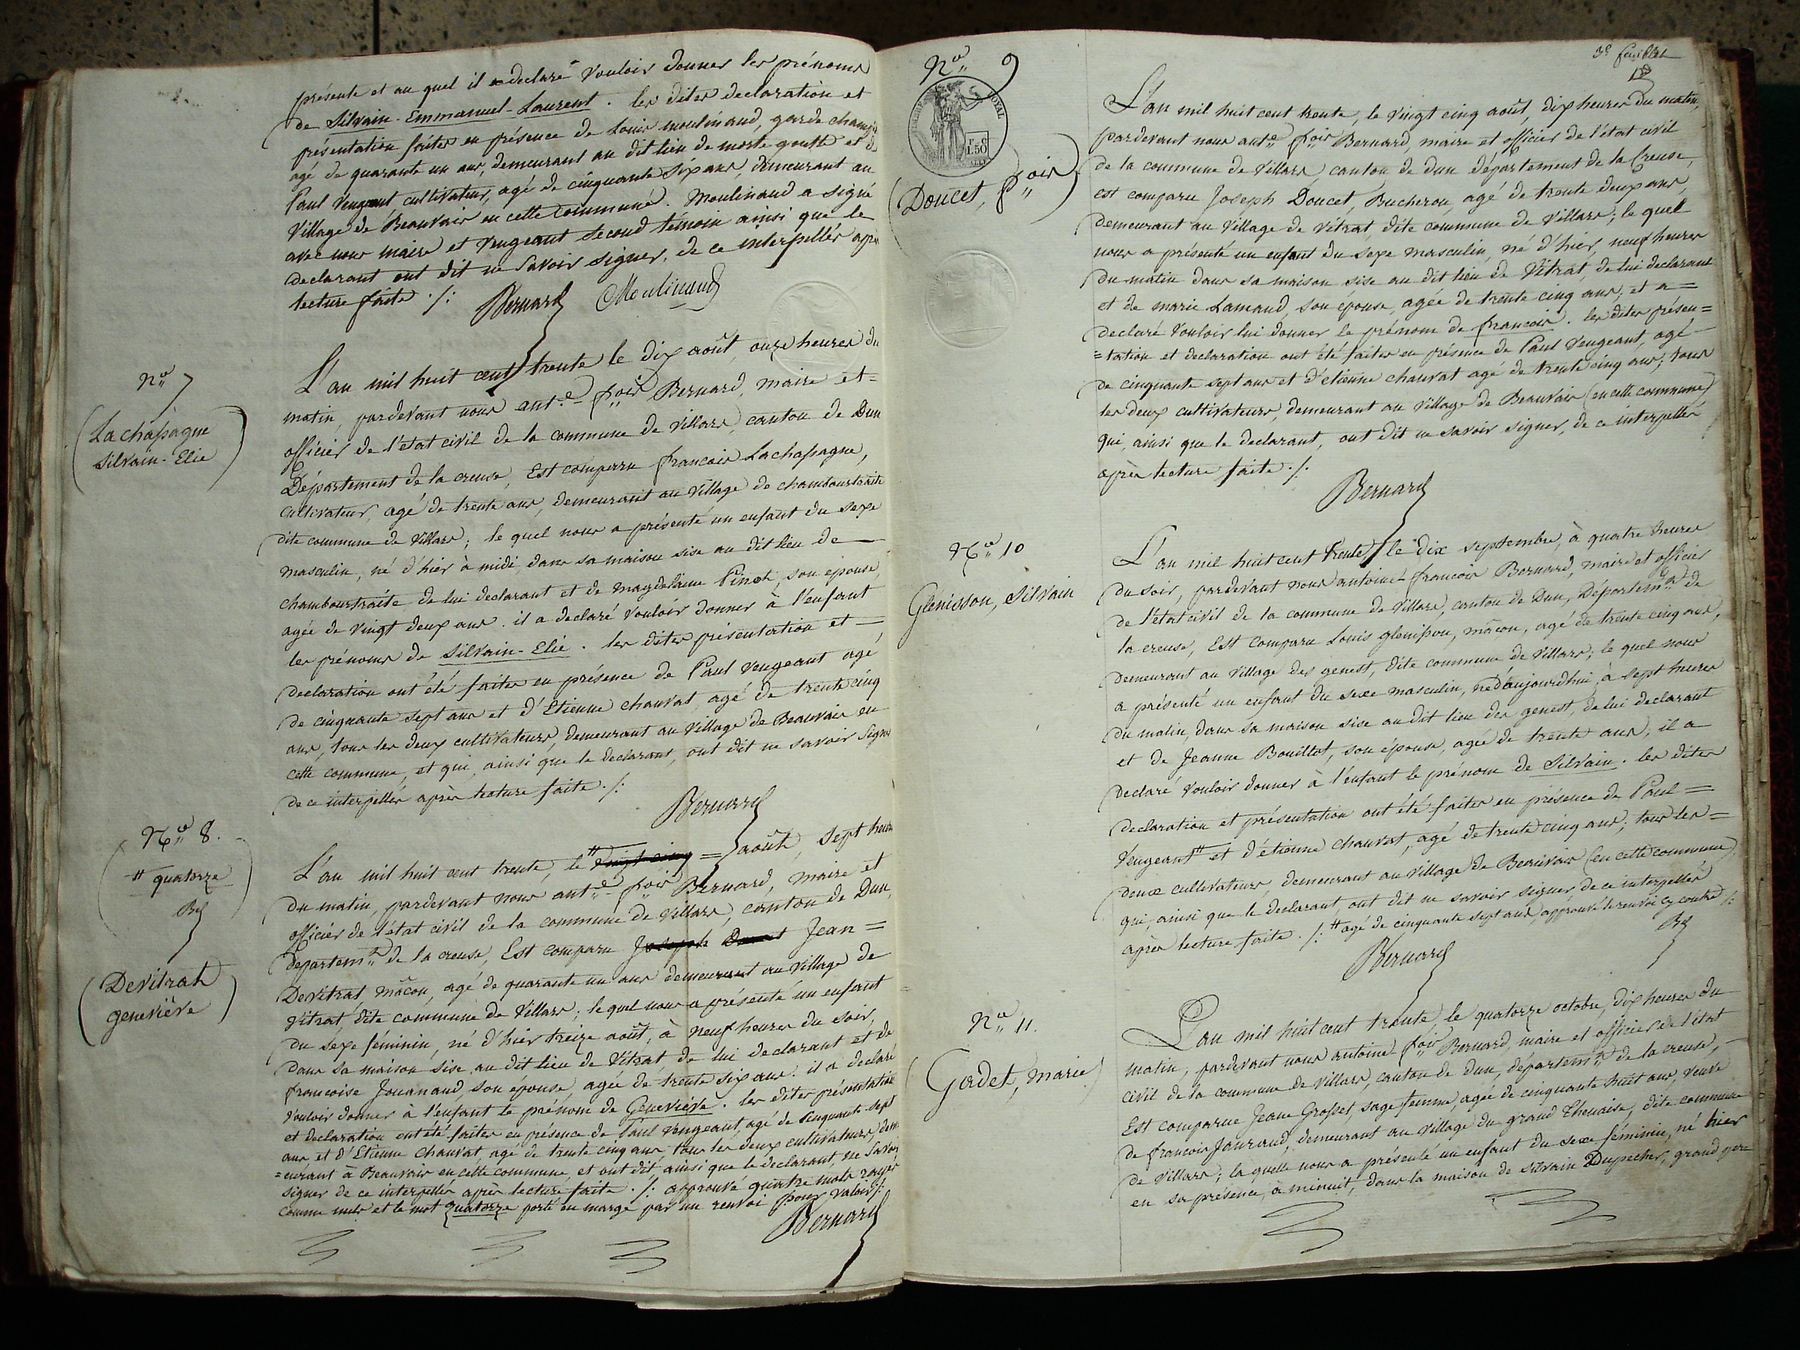 présente et au quel il a declaré vouloir donner les prénoms
de Silvain-Emmanuel-Laurent. les dites declaration et
présentation faites en présence de Louis moulinaud, garde champ
agé de quarante un ans, demeurant au dit lieu de morte goutte et de
Paul Vengeant cultivateur, agé de cinquante six ans, demeurant au
Village de Beauvais en cette commune. Moulinaud a signé
avec nous maire et Vengeant second témoin ainsi que le
declarant ont dit ne savoir signer, de ce interpellés après
lecture faite ./.
Bernard Moulinaud
nº 7
Lachapagne
Silvain-Elie
L'an mil huit cent trente le dix août, onze heures du
matin, pardevant nous ant.e f.ois Bernard, maire et =
officier de l'état civil de la commune de Villars, canton de Dun
Département de la creuse, Est comparu francois Lachapagne,
cultivateur, agé de trente ans, demeurant au Village de chambourtraite
dite commune de Villars; le quel nous a présenté un enfant du sexe
masculin, né d'hier à midi, dans sa maison sise au dit lieu de
chambourtraite de lui declarant et de magdelaine Pinot, son epouse,
agée de vingt deux ans. il a declaré vouloir donner à l'enfant
les prénoms de Silvain-Elie. les dites présentation et
declaration ont été faites en présence de Paul Vengeant agé
de cinquante sept ans et d'Etienne chauvat, agé de trente cinq
ans, tous les deux cultivateurs, demeurant au Village de Beauvais en
cette commune, et qui ainsi que le declarant, ont dit ne savoir signer
de ce interpellés après lecture faite ./.
Bernard
Nº 8.
# quatorze
Devitrat
geneviève
L'an mil huit cent trente, le # vingt cinq = août, sept heures
du matin, pardevant nous ant.e f.ois Bernard, maire et
officier de l'état civil de la commune de Villars, canton de Dun,
departem.t de la creuse, Est comparu Joseph Doucet Jean =
Devitrat mâcon, agé de quarante un ans demeurant au village de
Vitrat, dite commune de Villars; le quel nous a présenté un enfant
du sexe féminin, né d'hier treize août, à neuf heures du soir,
dans sa maison sise au dit lieu de Vitrat, de lui declarant et de
francoise Jouanaud, son epouse, agée de trente six ans: il a declaré
vouloir donner à l'enfant le prénom de Geneviève. les dites présentation
et declaration ont été faites en présence de Paul Vengeant, agé de cinquante sept
ans et d'Etienne chauvat agé de trente cinq ans, tous les deux cultivateurs dem
=eurant à Beauvais en cette commune et ont dit, ainsi que le declarant, ne savoir
signer de ce interpellés après lecture faite ./. approuvé quatre mots rayés
comme nuls et le mot quatorze porté en marge par un renvoi pour valoir ./.
Bernard
3e feuillet
Nº 9
ROYAL
1.50
Doucet, f.ois
L'an mil huit cent trente, le vingt cinq août, dix heures du matin,
pardevant nous ant.e f.ois Bernard, maire et officier de l'état civil
de la commune de Villars, canton de dun département de la Creuse,
est comparu Joseph Doucet, Bucheron, agé de trente deux ans,
demeurant au Village de Vitrat dite commune de Villars; le quel
nous a présenté un enfant du sexe masculin, né d'hier, neuf heures
du matin dans sa maison sise au dit lieu de Vitrat, de lui declarant
et de marie Lamaud, son epouse, agée de trente cinq ans, et a =
declaré vouloir lui donner le prénom de francois. les dites présen=
=tation et declaration ont été faites en présence de Paul Vengeant, agé
de cinquante sept ans et d'etienne chauvat agé de trente cinq ans; tous
les deux cultivateurs, demeurant au Village de Beauvais (en cette commune)
qui, ainsi que le declarant, ont dit ne savoir signer, de ce interpellés
après lecture faite ./.
Bernard
Nº 10
Glenisson, Silvain
L'an mil huit cent trente, le dix septembre, à quatre heures
du soir, pardevant nous antoine francois Bernard, maire et officier
de l'état civil de la commune de Villars, canton de Dun, Départem.t de
la creuse, Est comparu Louis glenisson, mâcon, agé de trente cinq ans,
demeurant au Village des genest, dite commune de Villars; le quel nous
a présenté un enfant du sexe masculin, né d'aujourdhui, à sept heures
du matin, dans sa maison sise au dit lieu des genest, de lui declarant
et de Jeanne Bouillot, son épouse, agée de trente ans; il a
declaré vouloir donner à l'enfant le prénom de Silvain. les dites
declaration et présentation ont été faites en présence de Paul =
Vengeant # et d'étienne chauvat, agé de trente cinq ans; tous les =
deux cultivateurs, demeurant au Village de Beauvais (en cette commune)
qui, ainsi que le declarant ont dit ne savoir signer de ce interpellés
après lecture faite ./. # agé de cinquante sept ans, approuvé le renvoi cy contre ./.
Bernard
Nº 11.
Gadet, marie
L'an mil huit cent trente le quatorze octobre, dix heures du
matin, pardevant nous antoine f.ois Bernard, maire et officier de l'état
civil de la commune de Villars, canton de dun, départem.t de la creuse,
Est comparue Jeane Grosset, sage femme, agée de cinquante huit ans, veuve
de françois Jouraud, demeurant au Village du grand Thouaire, dite commune
de Villars; la quelle nous a présenté un enfant du sexe féminin, né hier
en sa présence, à minuit, dans la maison de Silvain Dupecher, grand père